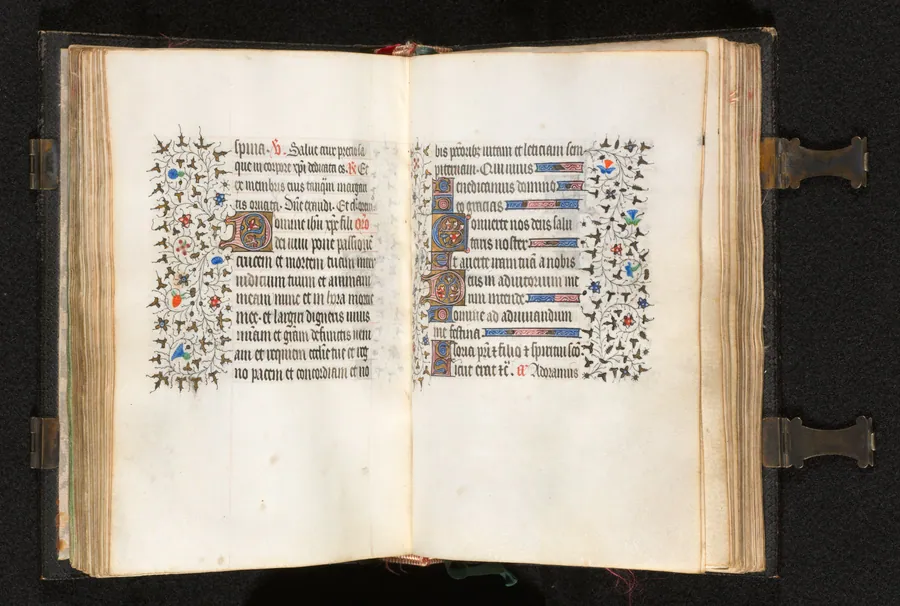 spina. V. Salue crux preciosa
que in corpore xpi dedicata es. R Et
ex membris eius tanqm marga
ritis ornata. Dne exaudi. Et clamor
Domine ihu xpe fili oro
dei uiui pone passionē
crucem et mortem tuam inter
iudicium tuum et animam
meam nunc et in hora mortis
mee. et largiri digneris uiuis
misericordiam et gratiam defunctis ueni
am et requiem ecclesie tue et reg
no pacem et concordiam et no
bis pctoribz uitam et leticiam sem
piternam. Qui uiuis
Benedicamus domino
Deo gracias
Conuerte nos deus salu
taris noster
Et auerte iram tuā a nobis
Deus in adiutorium me
um intende
Domine ad adiuuandum
me festina
Gloria pri et filio et spiritui sco.
Sicut erat et̄. a Adoramus